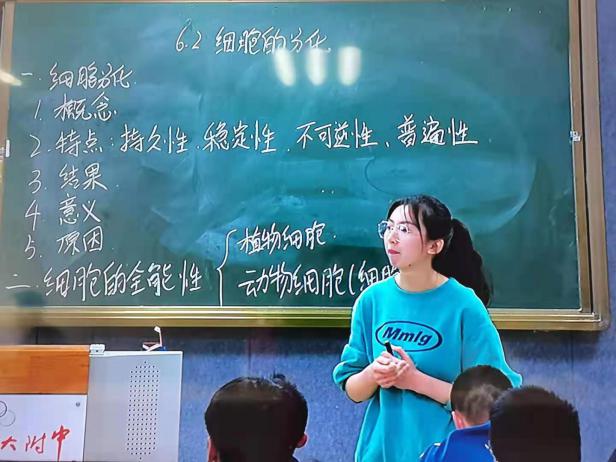 6.2 细胞的分化
一. 细胞分化
1. 概念
2. 特点：持久性、稳定性、不可逆性、普遍性
3. 结果
4. 意义
5. 原因
二. 细胞的全能性 { 植物细胞
动物细胞(细胞
Mmlg
大附中